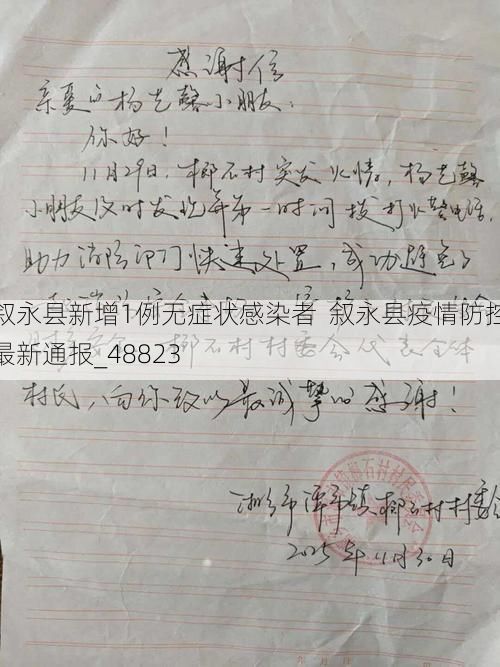 感谢信
亲爱的杨艺馨小朋友:
你好!
11月29日,椰石村突发火情,杨艺馨
小朋友及时发现并第一时间拨打火警电话,
助力消防部门快速处置,成功避免了
叙永县新增1例无症状感染者 叙永县疫情防控
最新通报_48823
村委会代表全体
村民,向你致以最诚挚的感谢!
湘乡市潭市镇椰石村村委会
2025年11月30日
年 月 日